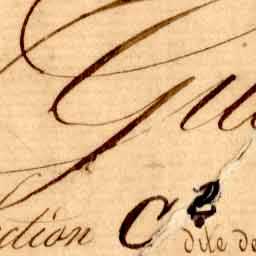 Gu
ction C² dite de